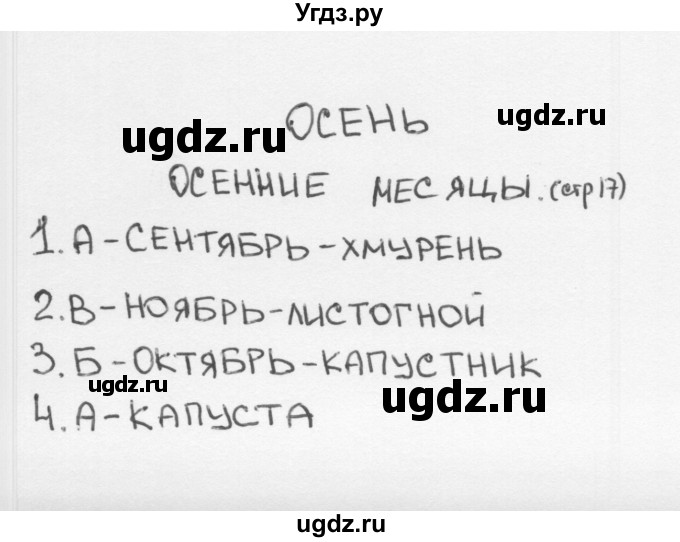 Угдз.ру
ugdz.ru
ОСЕНЬ
ugdz.ru
ОСЕННИЕ МЕСЯЦЫ. (стр 17)
1. А - СЕНТЯБРЬ - ХМУРЕНЬ
2. В - НОЯБРЬ - ЛИСТОГНОЙ
3. Б - ОКТЯБРЬ - КАПУСТНИК
ugdz.ru
4. А - КАПУСТА
ugdz.ru
ugdz.ru